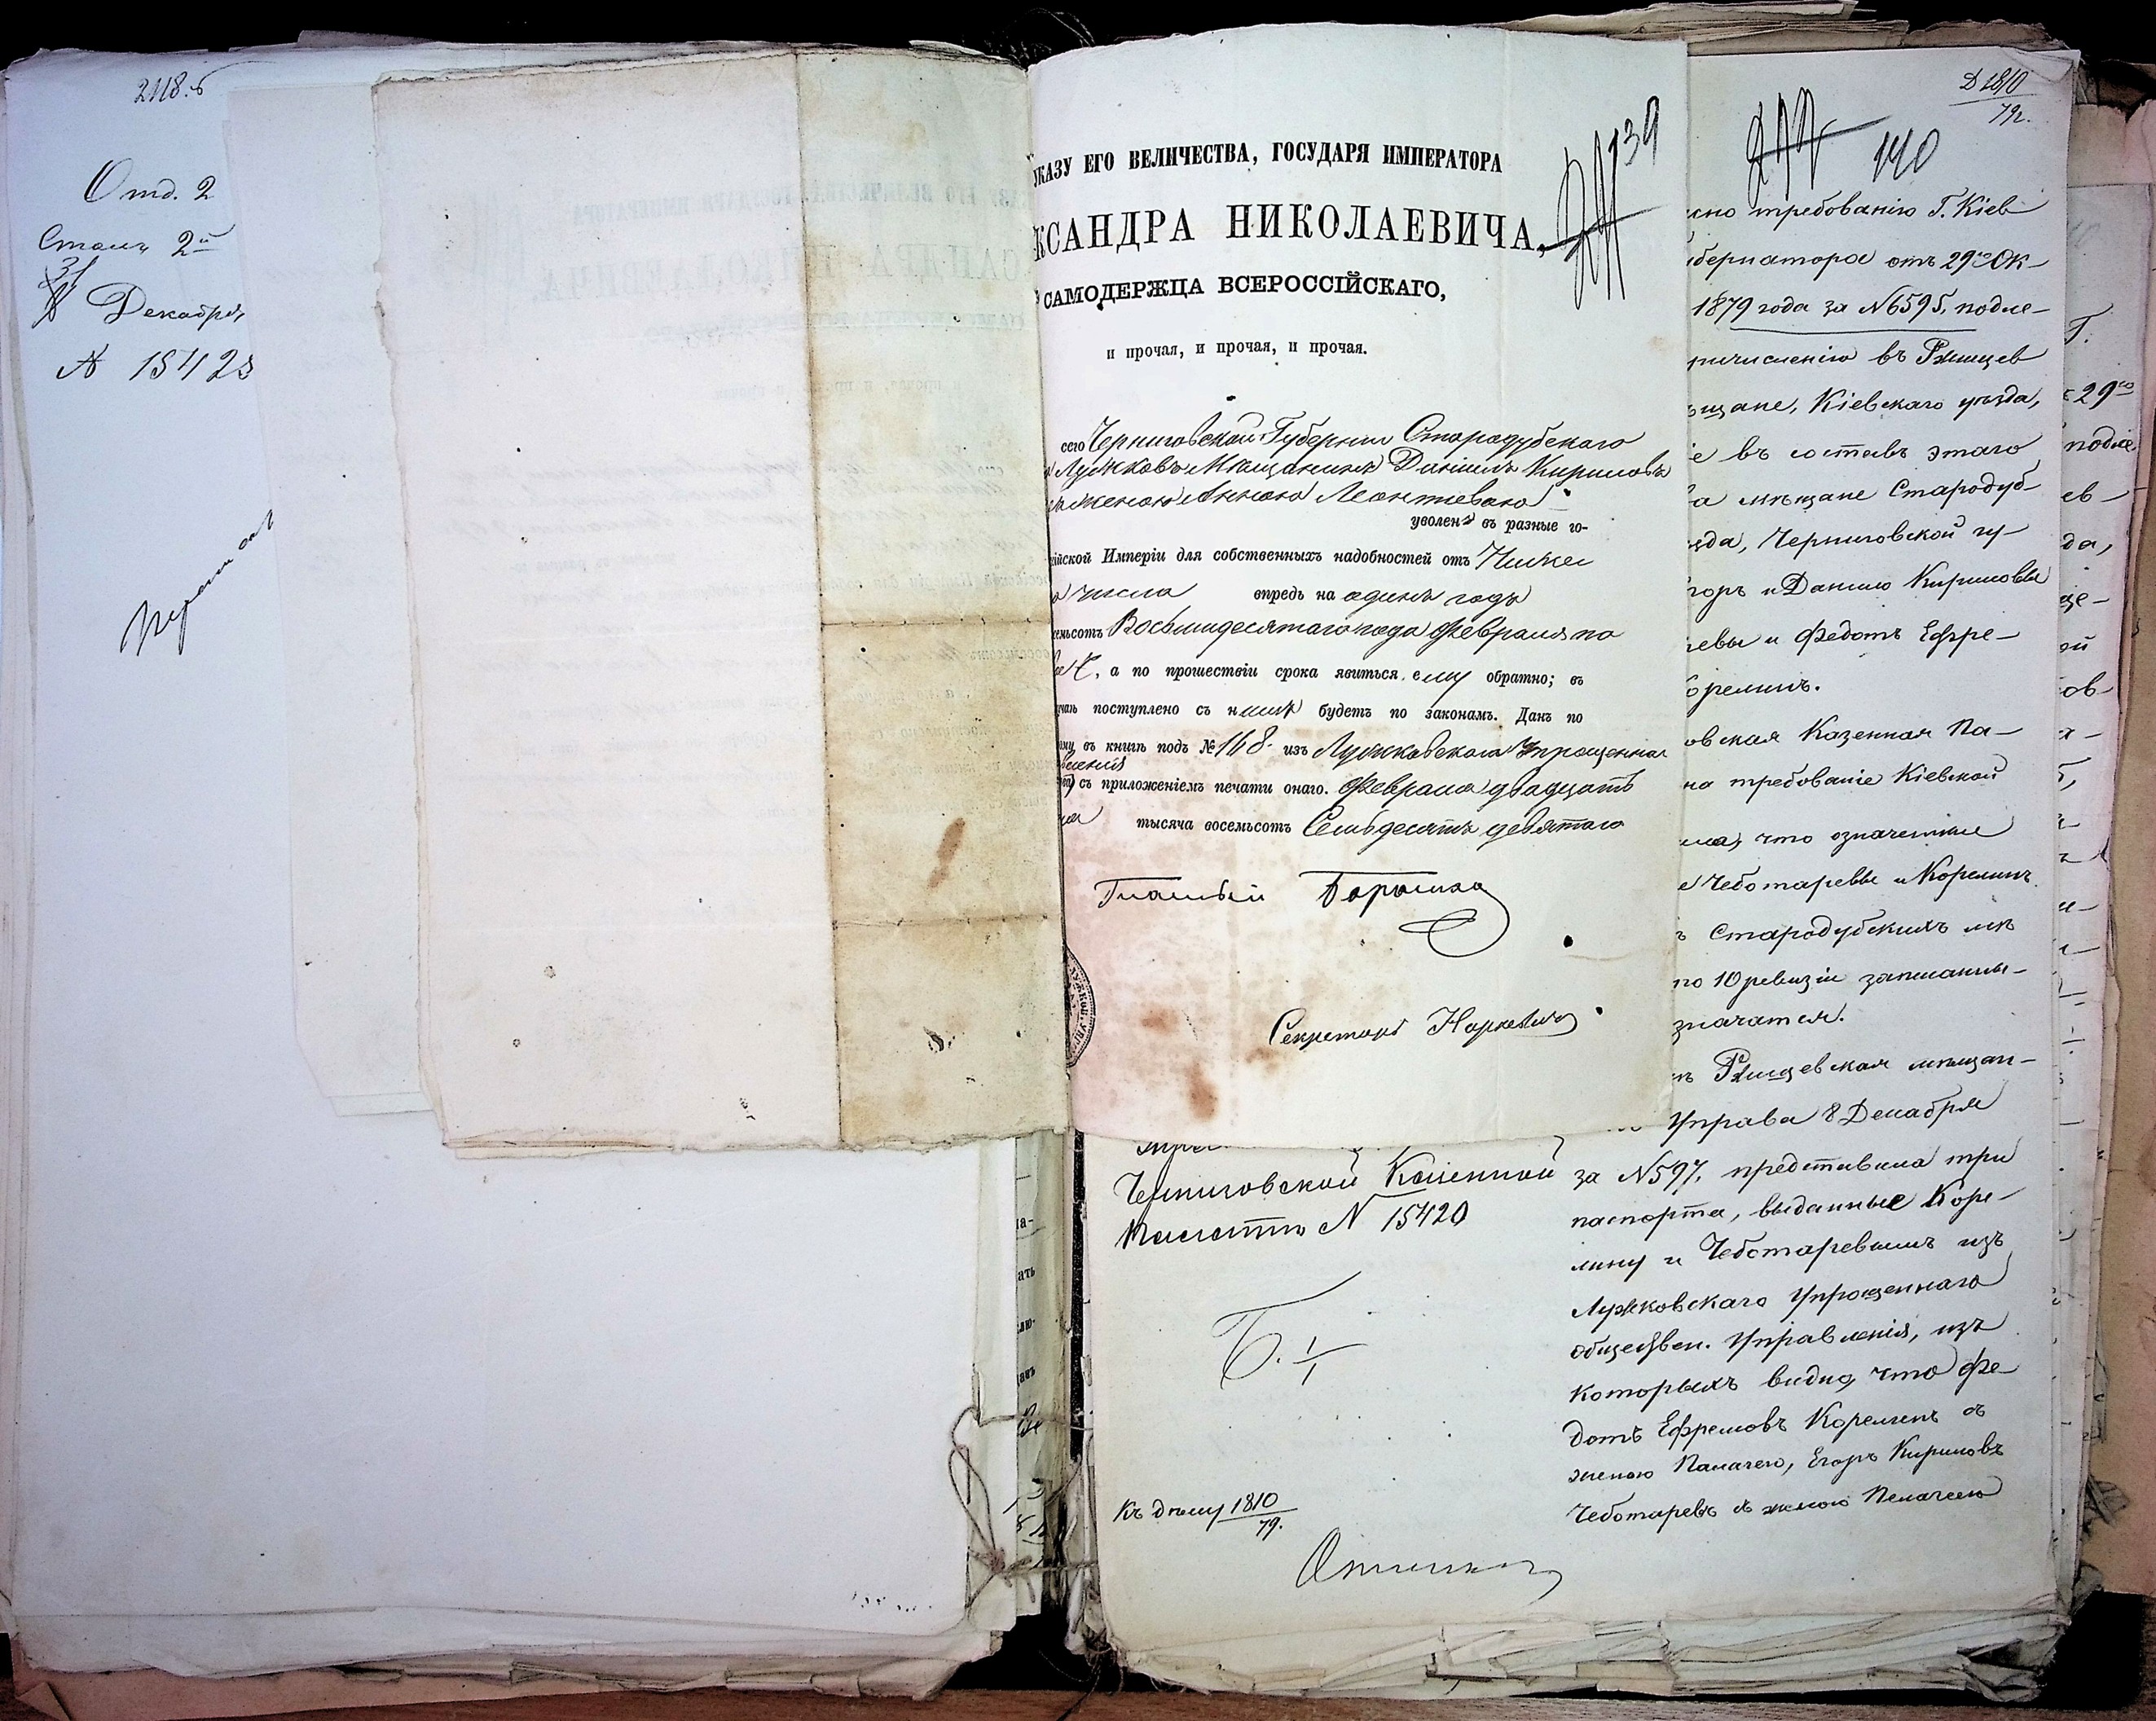 2118.б
Отд. 2
Столъ 2й
31
Декабря
№ 15423
139
УКАЗУ ЕГО ВЕЛИЧЕСТВА, ГОСУДАРЯ ИМПЕРАТОРА
КСАНДРА НИКОЛАЕВИЧА,
САМОДЕРЖЦА ВСЕРОССІЙСКАГО,
и прочая, и прочая, и прочая.
сего Черниговской Губерніи Стародубскаго
Лужковъ Мѣщанинъ Даніилъ Кириловъ
женою Анною Леонтевою
уволенъ въ разные го-
ійской Имперіи для собственныхъ надобностей отъ Ниже
числа впредь на одинъ годъ
емьсотъ Восьмидесятаго года Февраля по
а по прошествіи срока явиться ему обратно; въ
учаѣ поступлено съ нимъ будетъ по законамъ. Данъ по
ому въ книгѣ подъ № 148. изъ Лужковскаго Упрощеннаго
вленія
съ приложеніемъ печати онаго. Февраля двадцать
тысяча восемьсотъ Семьдесятъ девятаго
Гласный
Секретарь Наркевичъ
Д 1810
79г.
140
сно требованію Г. Кіев
убернатора отъ 29го Ок-
1879 года за № 6595, подле-
ричисленію въ Ржищев
ѣщане, Кіевскаго уѣзда,
е въ составъ этаго
ва мѣщане Стародуб-
зда, Черниговской гу-
горъ и Данило Кириловы
ревы и Федотъ Ефре-
орелинъ.
овская Казенная Па-
на требованіе Кіевской
ила, что означенные
е Чеботаревы и Корелинъ
ъ Стародубскихъ мѣ
по 10 ревизіи записанны-
значатся.
ъ Ржищевская мѣщан-
Управа 8 Декабря
за № 597, представила три
паспорта, выданные Коре-
лину и Чеботаревымъ изъ
Лужковскаго Упрощеннаго
обществен. Управленія, изъ
которыхъ видно, что Фе-
дотъ Ефремовъ Корелинъ съ
женою Палагеею, Егоръ Кириловъ
Чеботаревъ съ женою Пелагеею
Черниговской Казенной
Палатѣ № 15420
Б. 1/1
Къ дѣлу 1810
79.